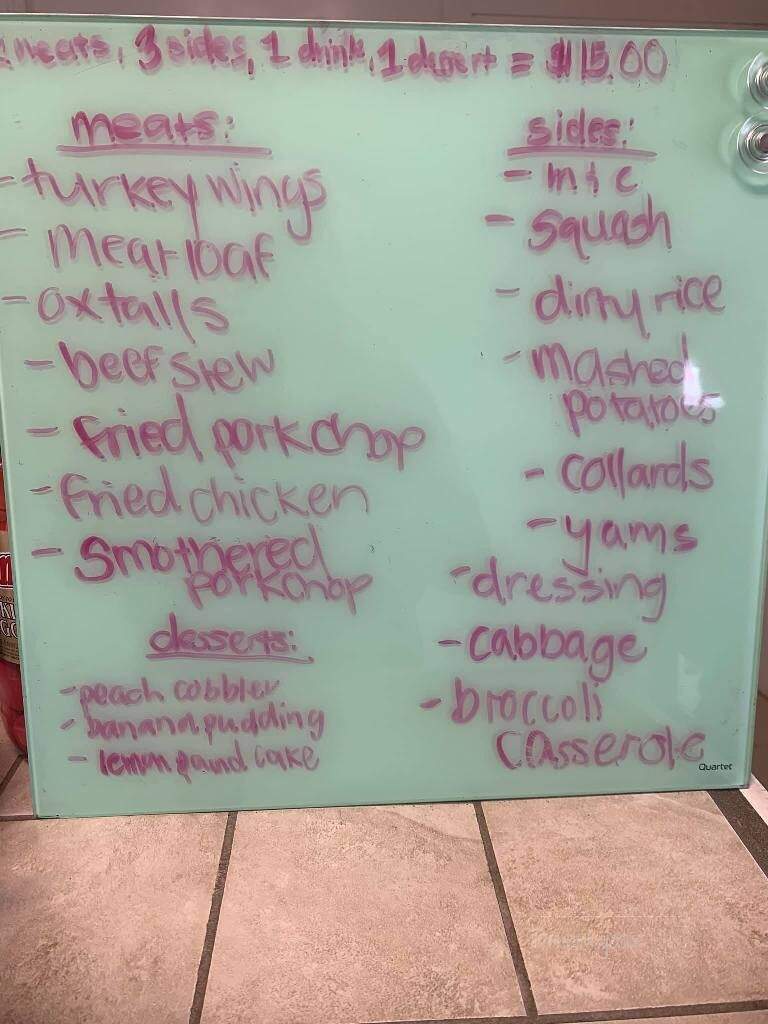 meats, 3 sides, 1 drink, 1 dessert = $15.00
meats:
- turkey wings
- Meatloaf
- oxtails
- beef stew
- fried porkchop
- fried chicken
- Smothered
porkchop
desserts:
- peach cobbler
- banana pudding
- lemon pound cake
sides:
- m & c
- squash
- dirty rice
- mashed
potatoes
- collards
- yams
- dressing
- cabbage
- broccoli
casserole
Quartet